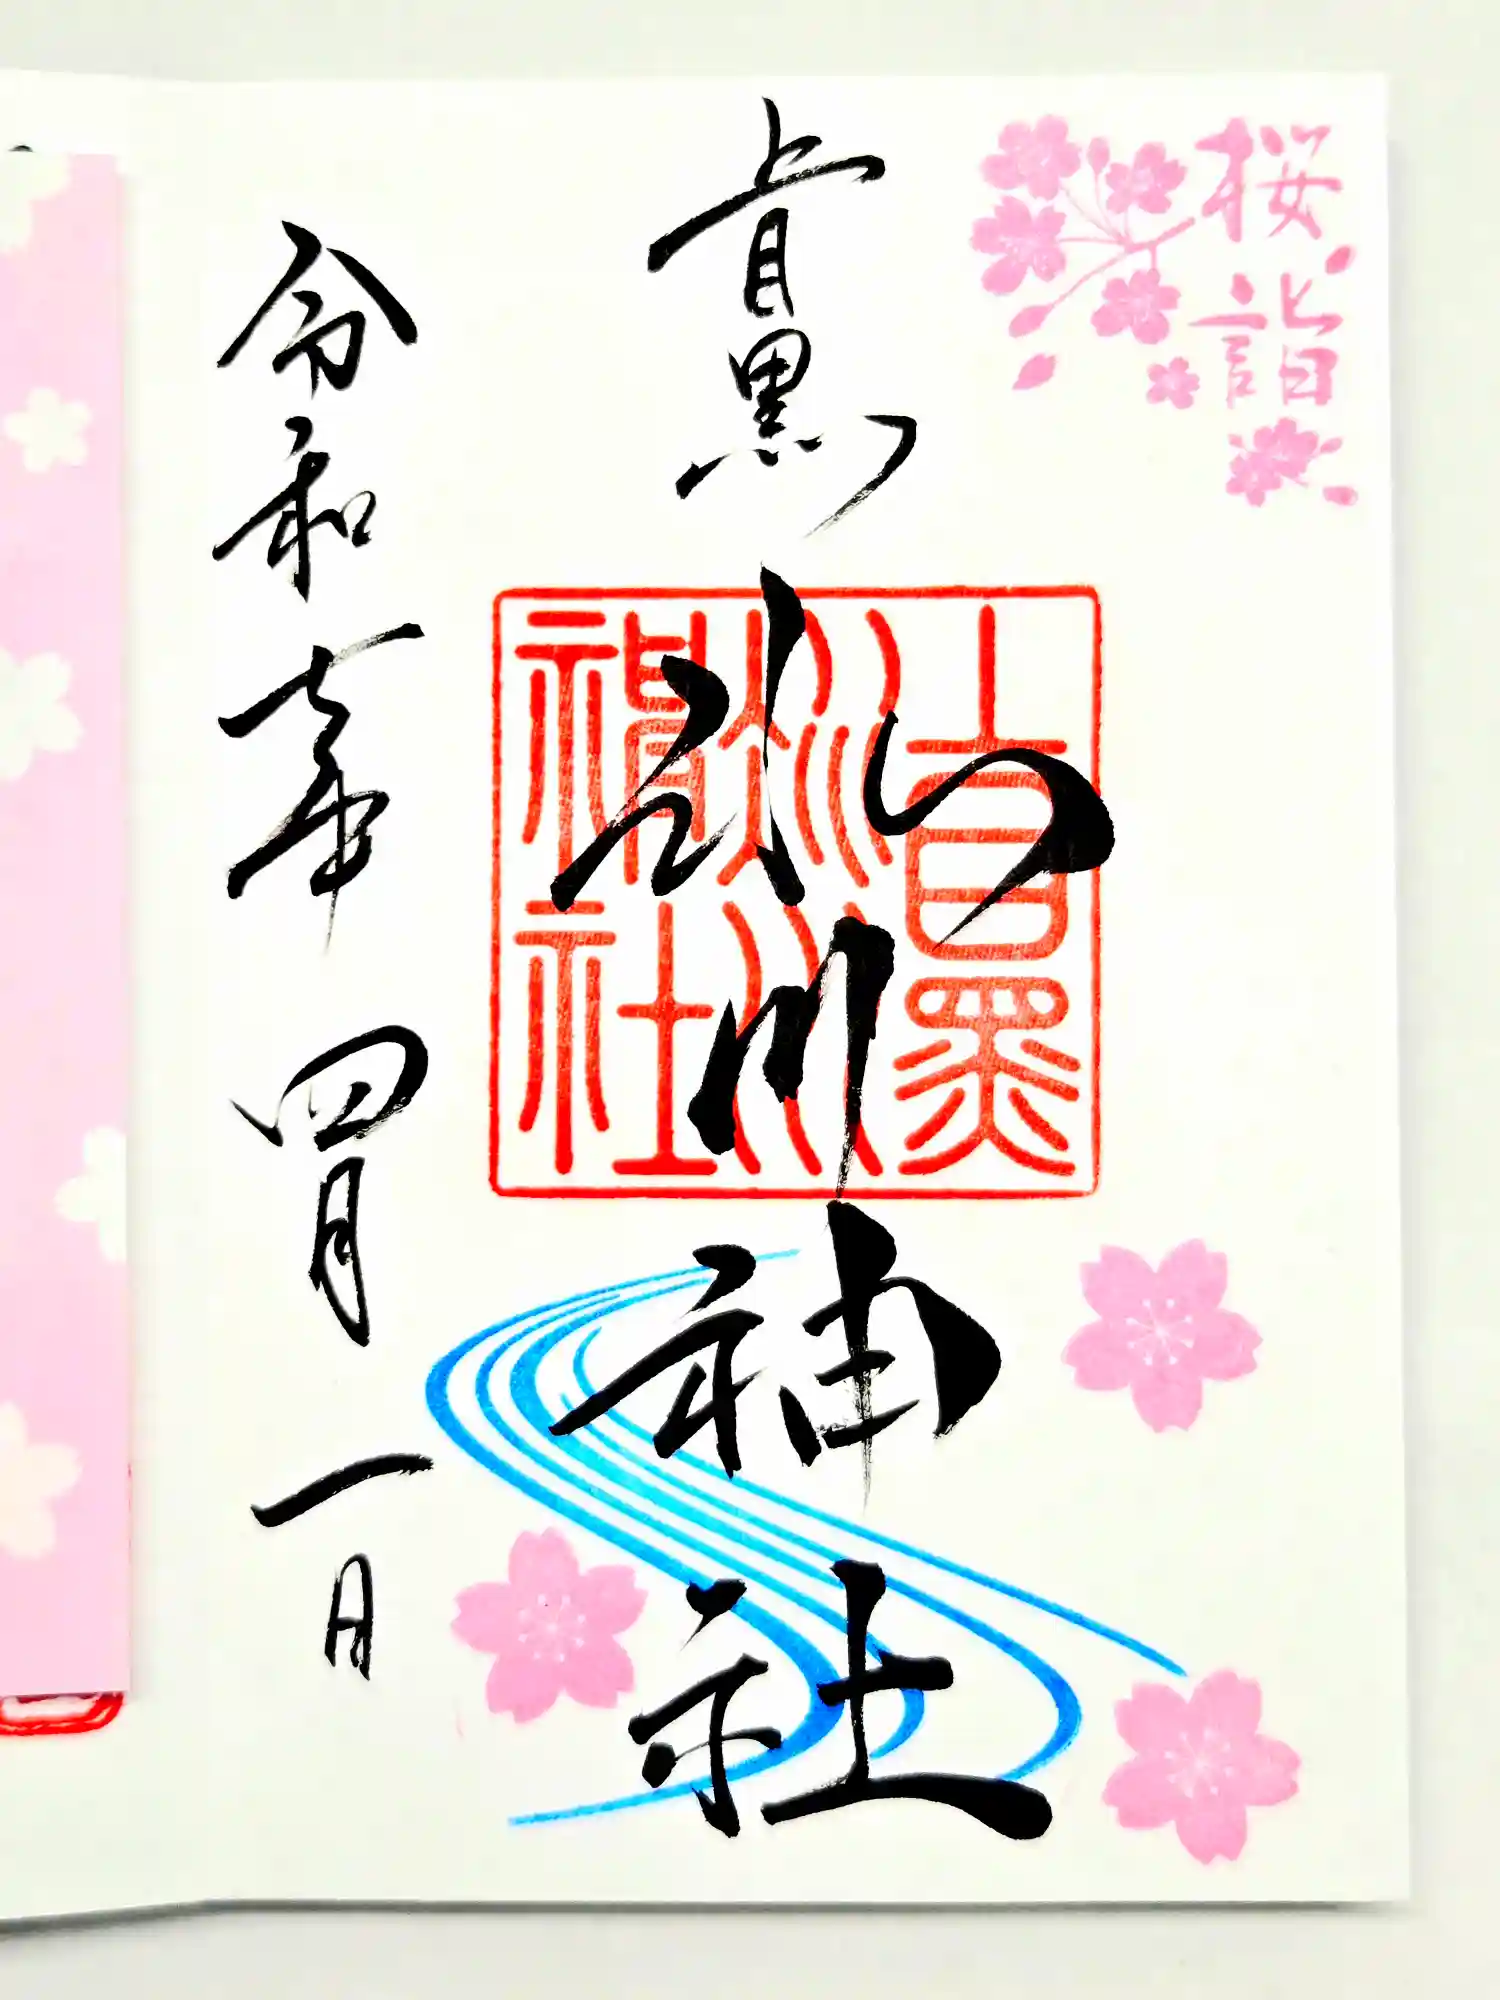 桜詣
上目黒
氷川神社
上目黒
氷川
神社
令和七年四月一日